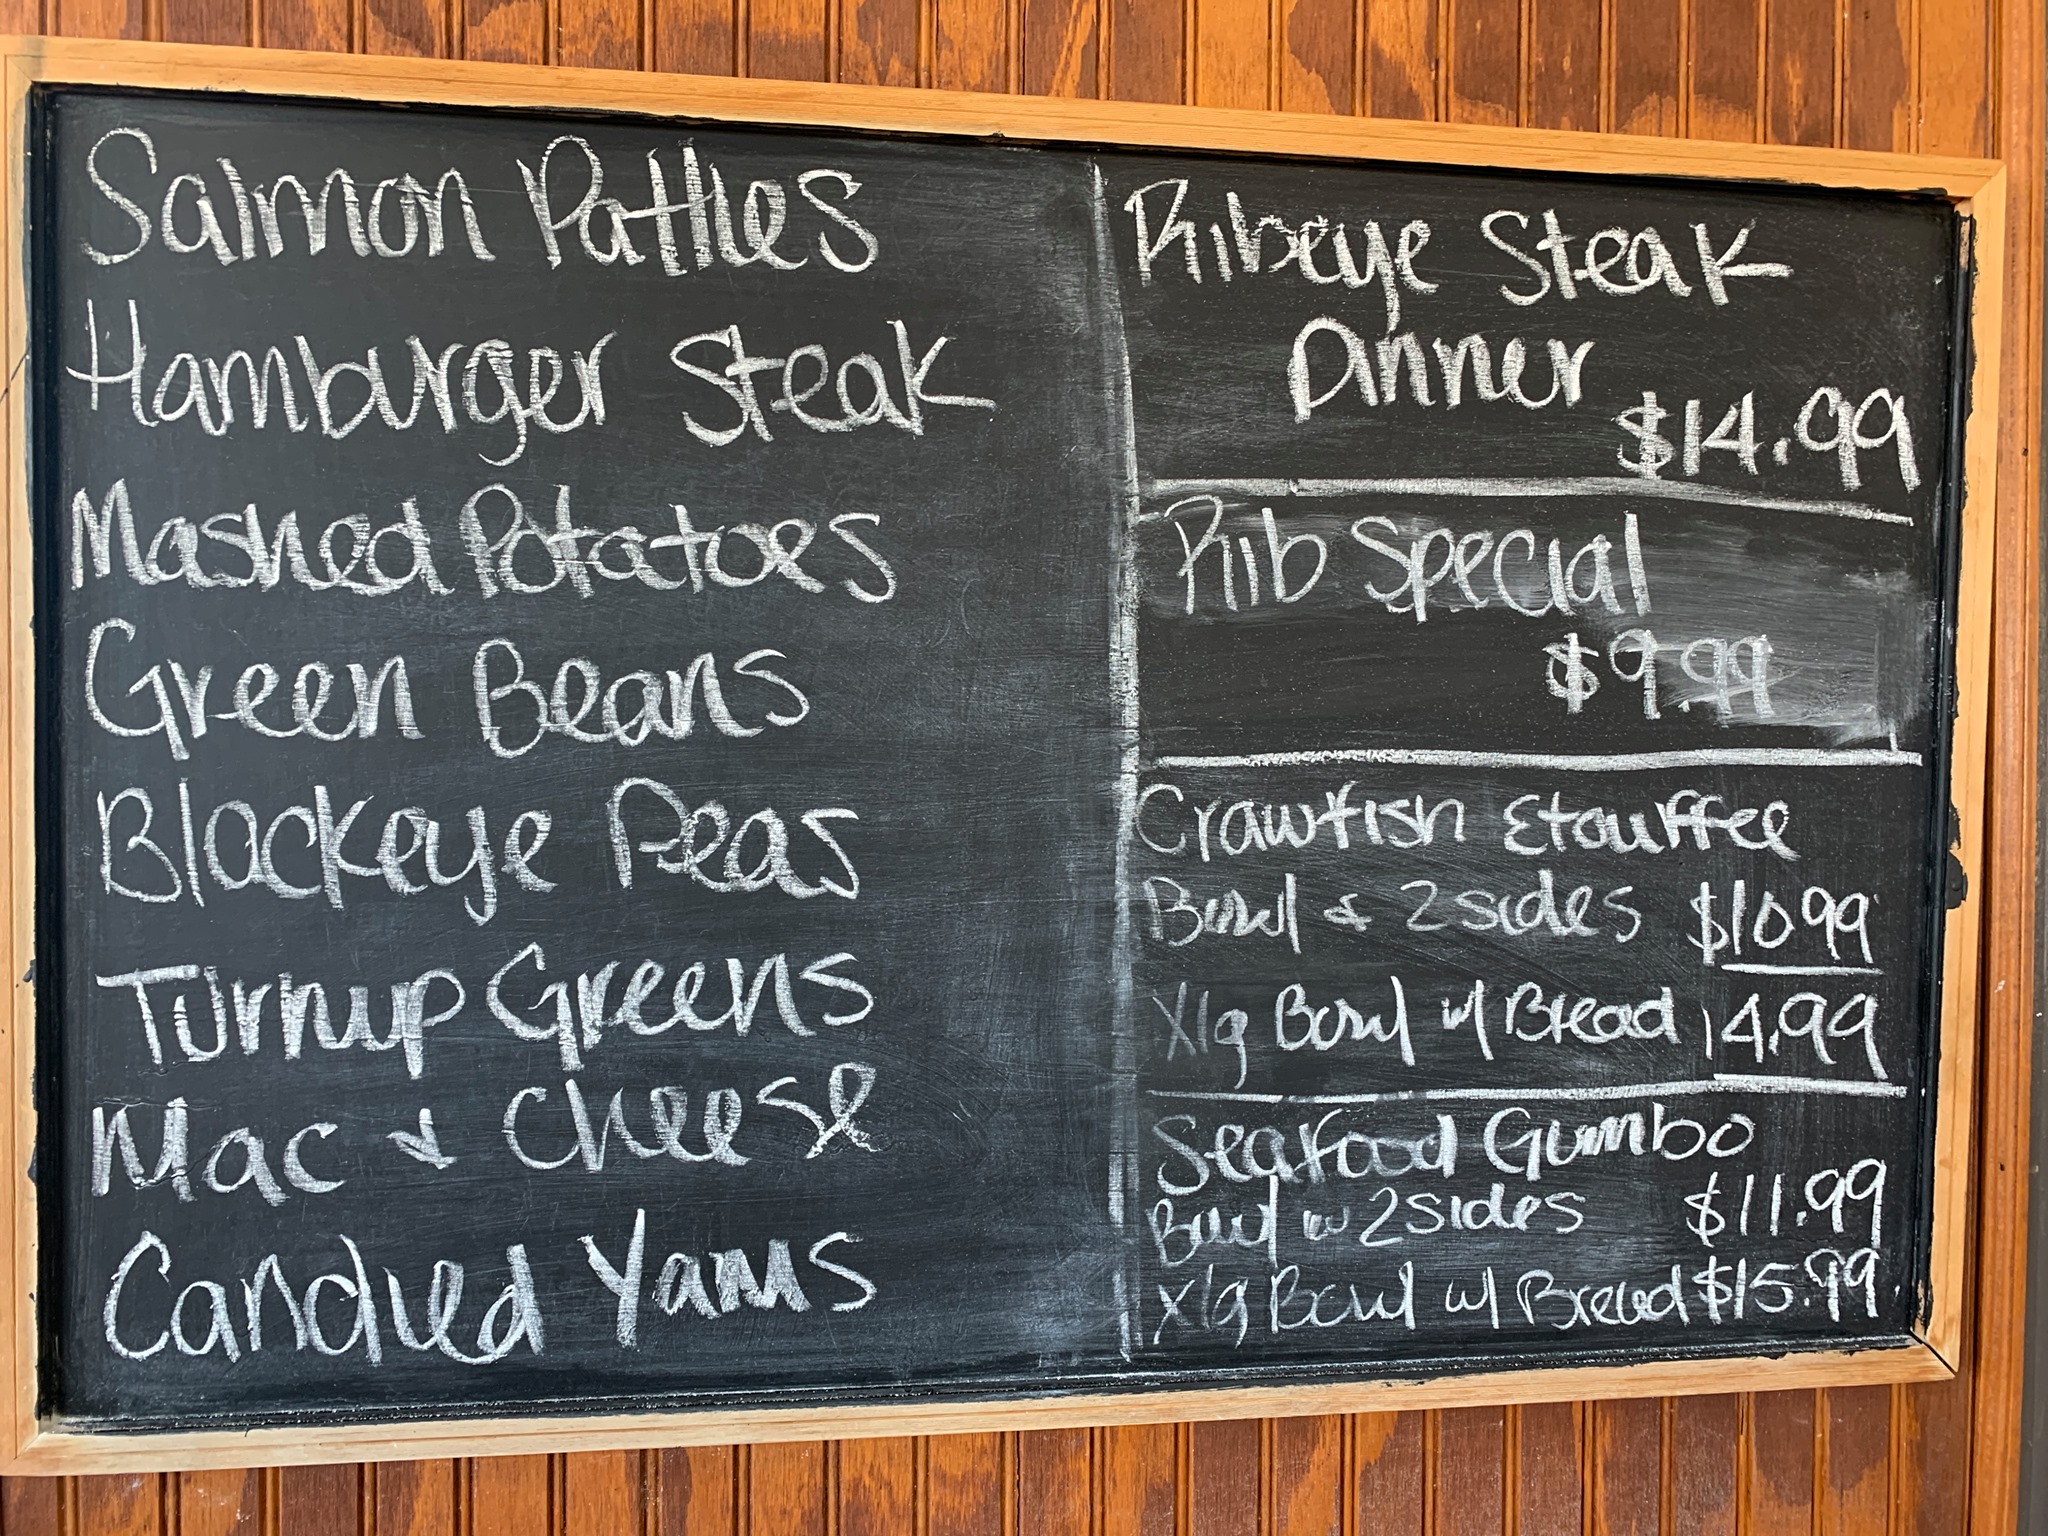 Salmon Patties
Hamburger Steak
Mashed Potatoes
Green Beans
Blackeye Peas
Turnup Greens
Mac & Cheese
Candied Yams
Ribeye Steak
Dinner
$14.99
Rib Special
$9.99
Crawfish Etouffee
Bowl & 2 sides $10.99
Xlg Bowl w/ Bread 14.99
Seafood Gumbo
Bowl w 2 sides $11.99
Xlg Bowl w/ Bread $15.99